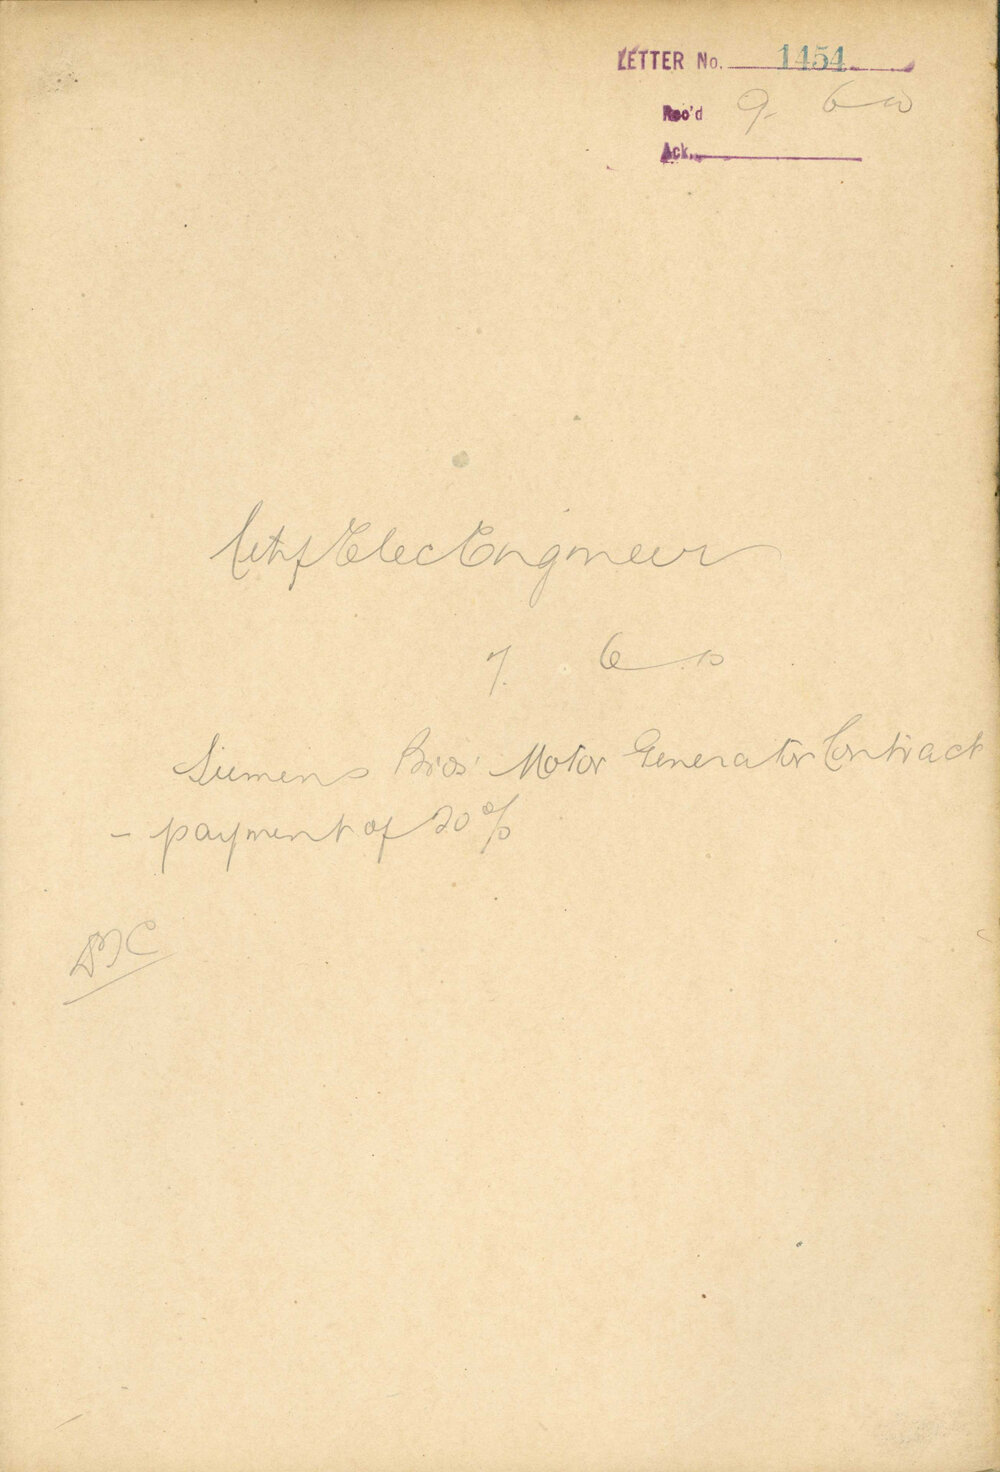 LETTER No. 1454
Rec'd 9. 6 10
Ack.
City Elec Engineer
7. 6 10
Siemens Bros' Motor Generator Contract
- payment of 20%